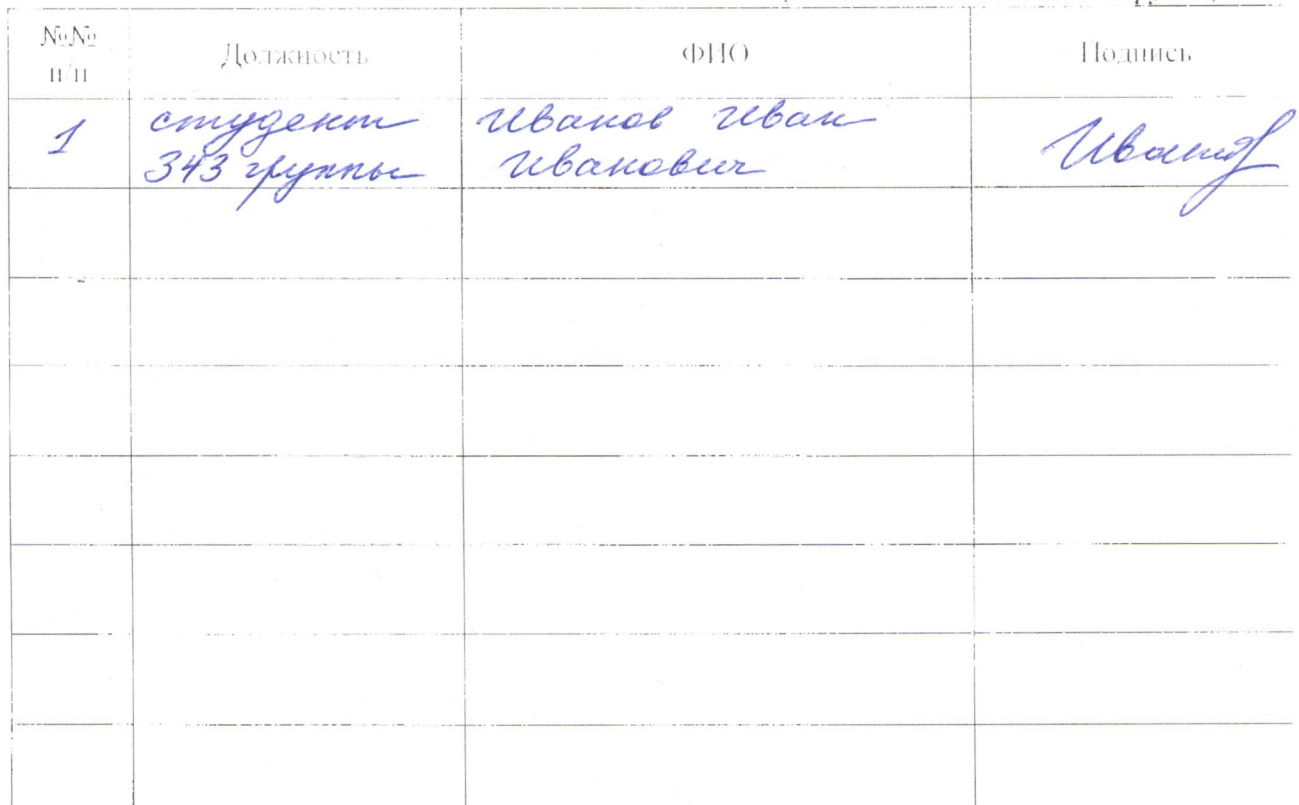 №№
п/п
Должность
ФИО
Подпись
1
студент
343 группы
Иванов Иван
Иванович
Иванов